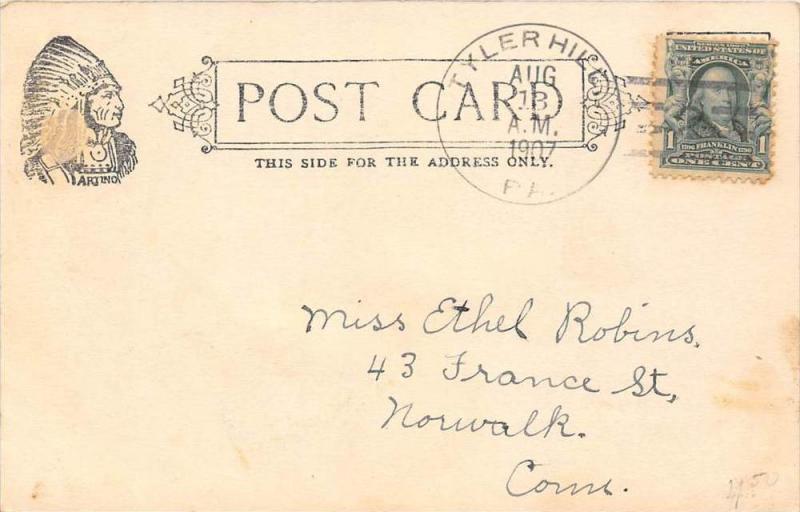 ARTINO
POST CARD
THIS SIDE FOR THE ADDRESS ONLY.
TYLER HILL
AUG
13
A.M.
1907
PA.
SERIES 1902
UNITED STATES OF
AMERICA
1 1
FRANKLIN
POSTAGE
ONE CENT
Miss Ethel Robins.
43 France St,
Norwalk.
Conn.